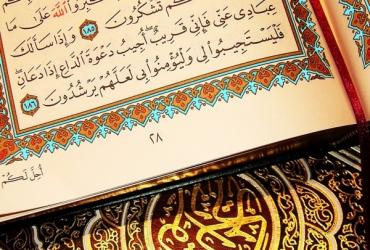 ـبِّرُوا۟ ٱللَّهَ عَلَىٰ مَا
كُمْ تَشْكُرُونَ ١٨٥ وَإِذَا سَأَلَكَ
عِبَادِى عَنِّى فَإِنِّى قَرِيبٌ أُجِيبُ دَعْوَةَ ٱلدَّاعِ إِذَا دَعَانِ
فَلْيَسْتَجِيبُوا۟ لِى وَلْيُؤْمِنُوا۟ بِى لَعَلَّهُمْ يَرْشُدُونَ ١٨٦
٢٨
أُحِلَّ لَكُمْ